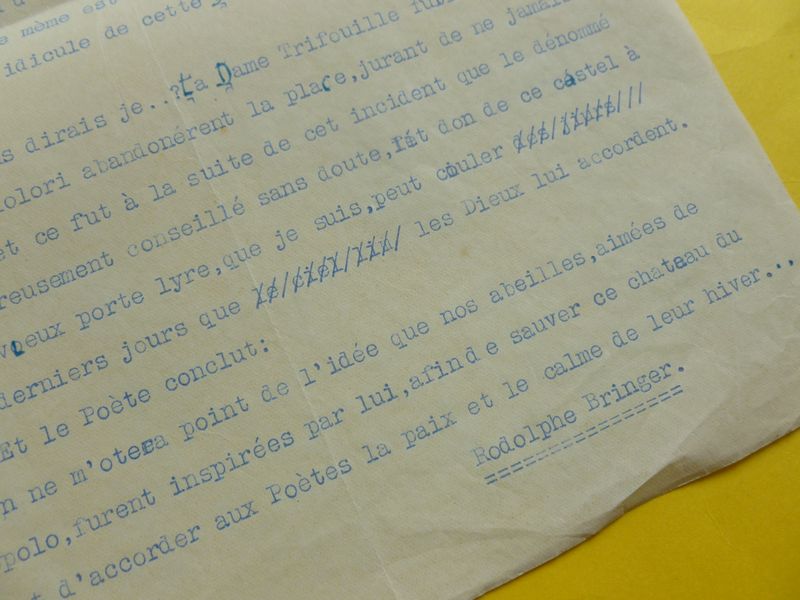 e même est
idicule de cette
s dirais je..?La Dame Trifouille
olori abandonérent la place,jurant de ne jamais
et ce fut à la suite de cet incident que le dénommé
reusement conseillé sans doute,fit don de ce castel à
vieux porte lyre,que je suis,peut couler
derniers jours que les Dieux lui accordent.
Et le Poète conclut:
n ne m'otera point de l'idée que nos abeilles,aimées de
polo,furent inspirées par lui,afind e sauver ce chateau du
t d'accorder aux Poètes la paix et le calme de leur hiver...
Rodolphe Bringer.